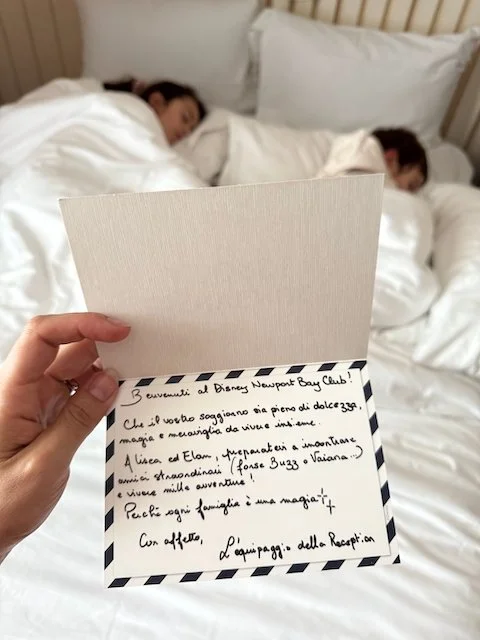 Benvenuti al Disney Newport Bay Club!
Che il vostro soggiorno sia pieno di dolcezza,
magia e meraviglia da vivere insieme.
Alisea ed Elan, preparatevi a incontrare
amici straordinari (forse Buzz o Vaiana...)
e vivere mille avventure!
Perché ogni famiglia è una magia
Con affetto,
L'équipaggio della Reception